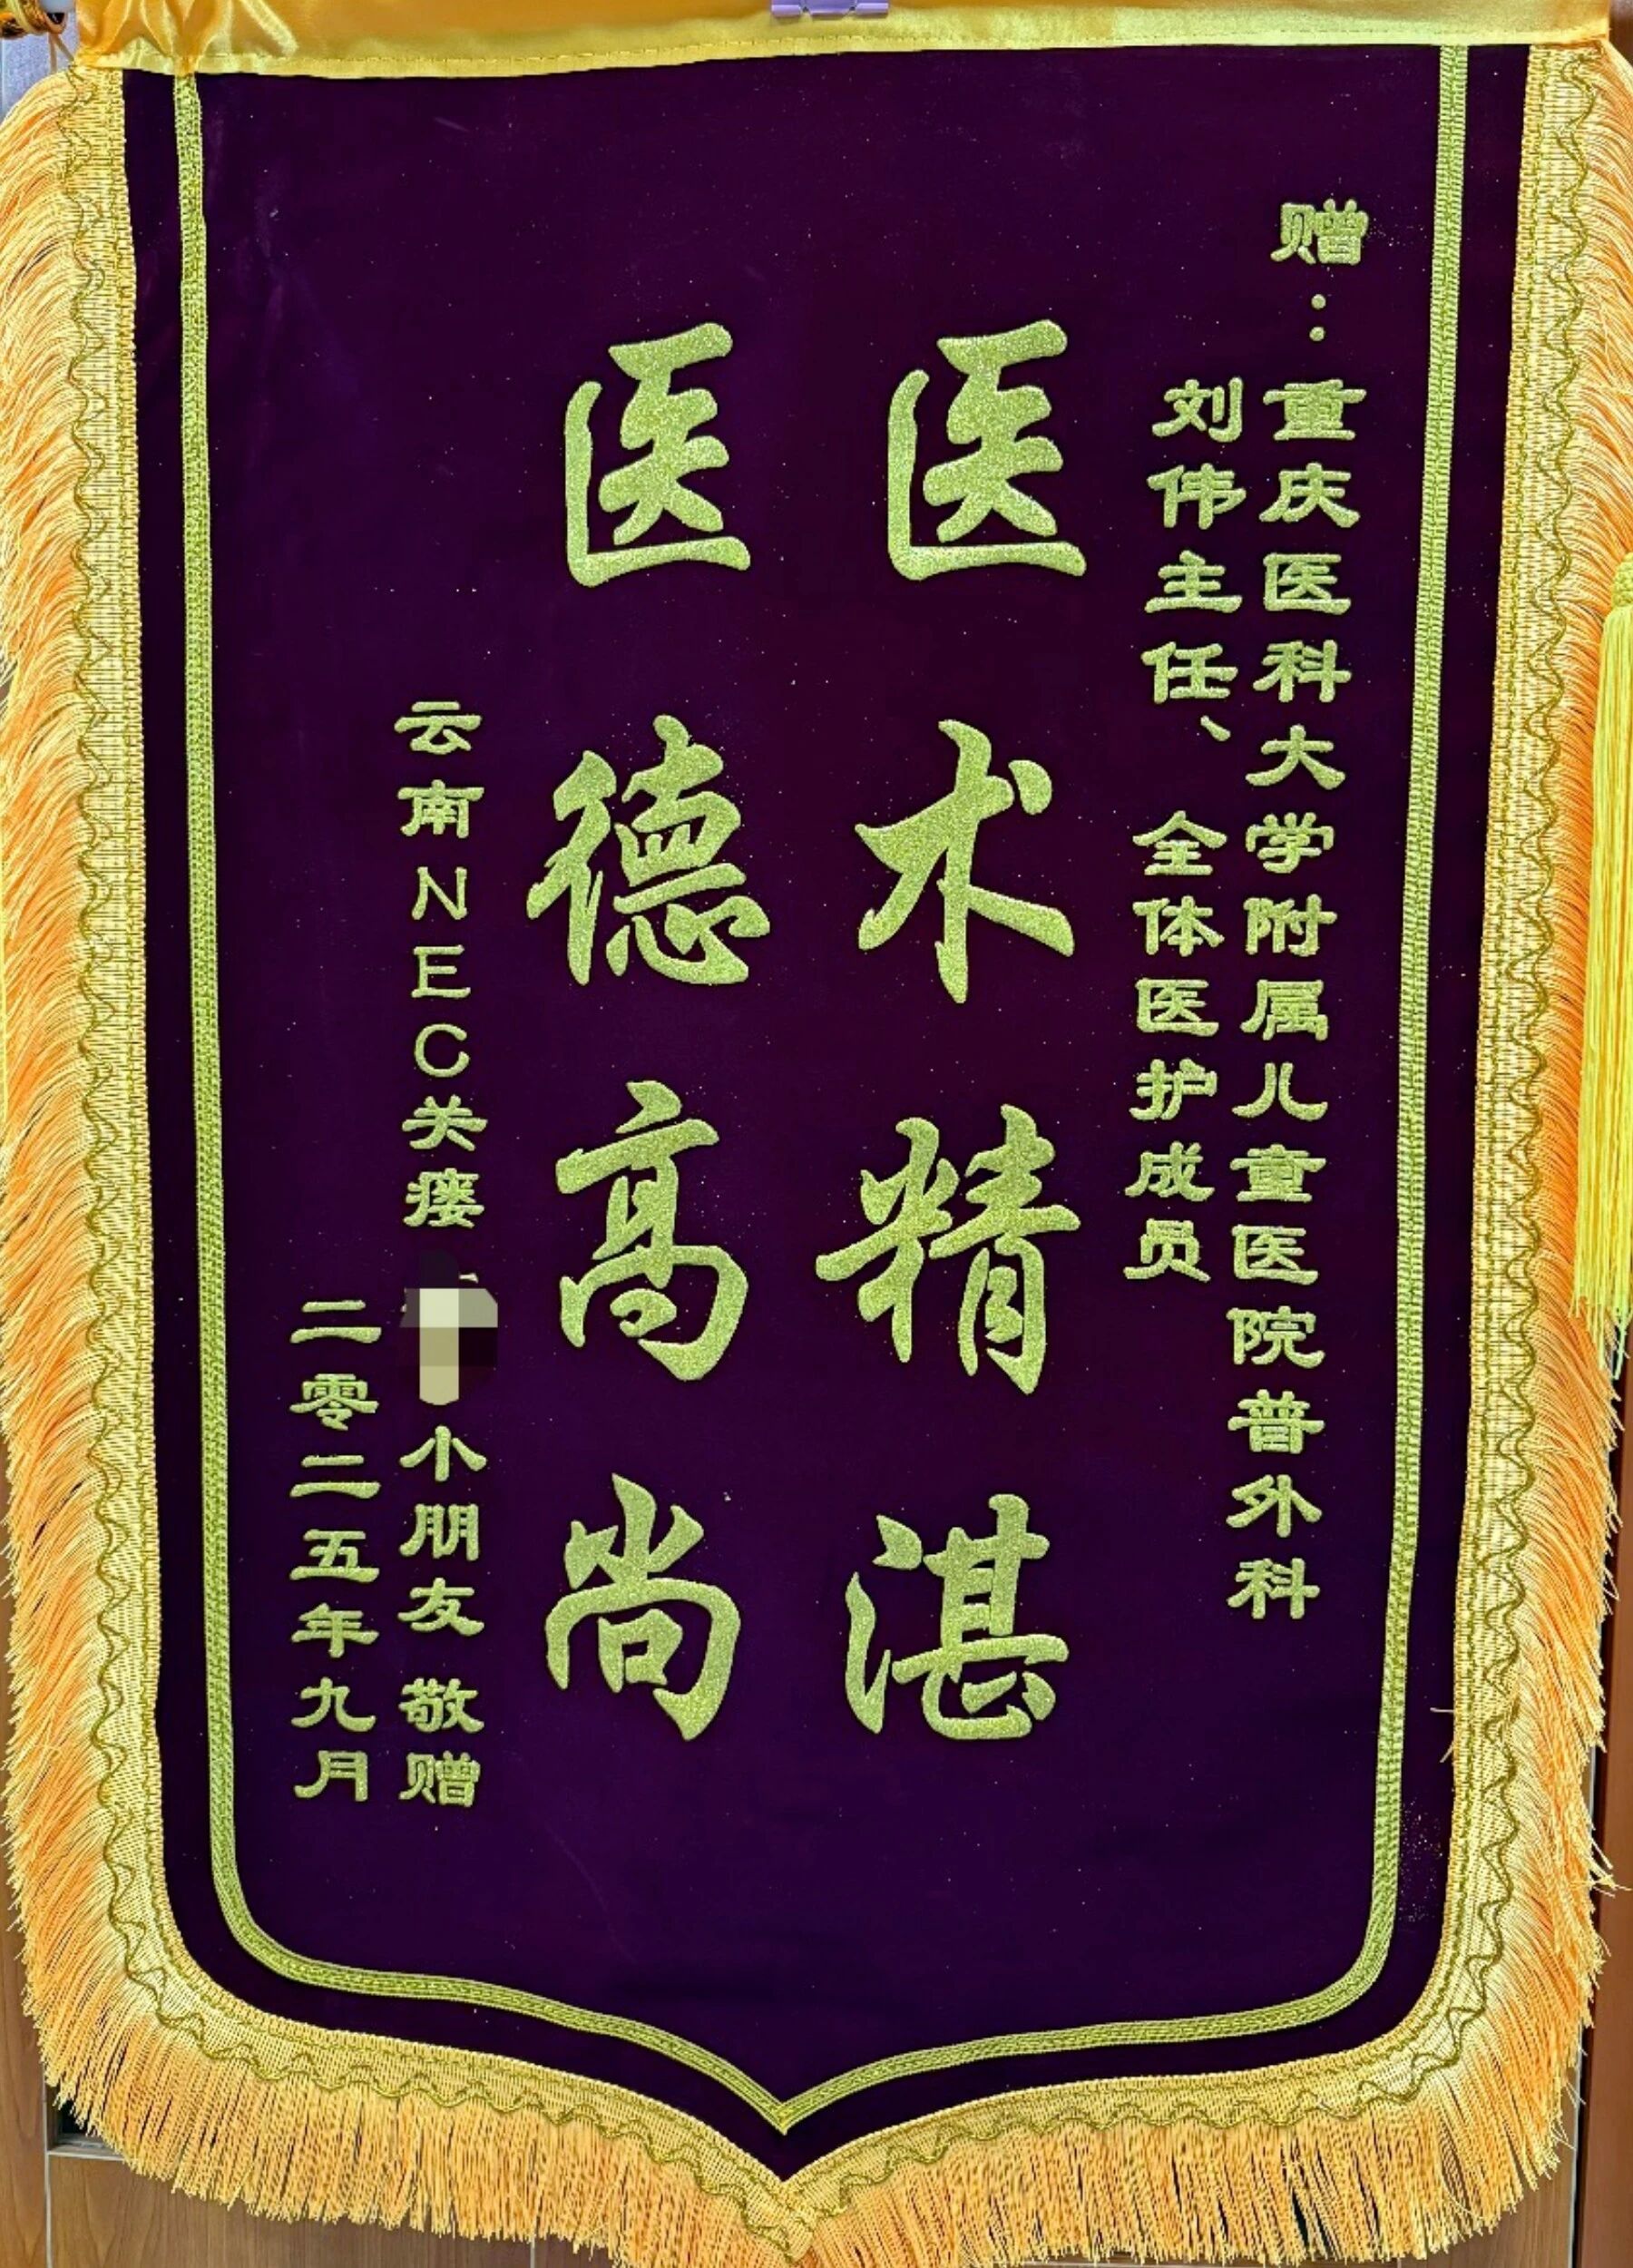 赠：重庆医科大学附属儿童医院普外科
刘伟主任、全体医护成员
医术精湛
医德高尚
云南NEC关瘘 小朋友 敬赠
二零二五年九月